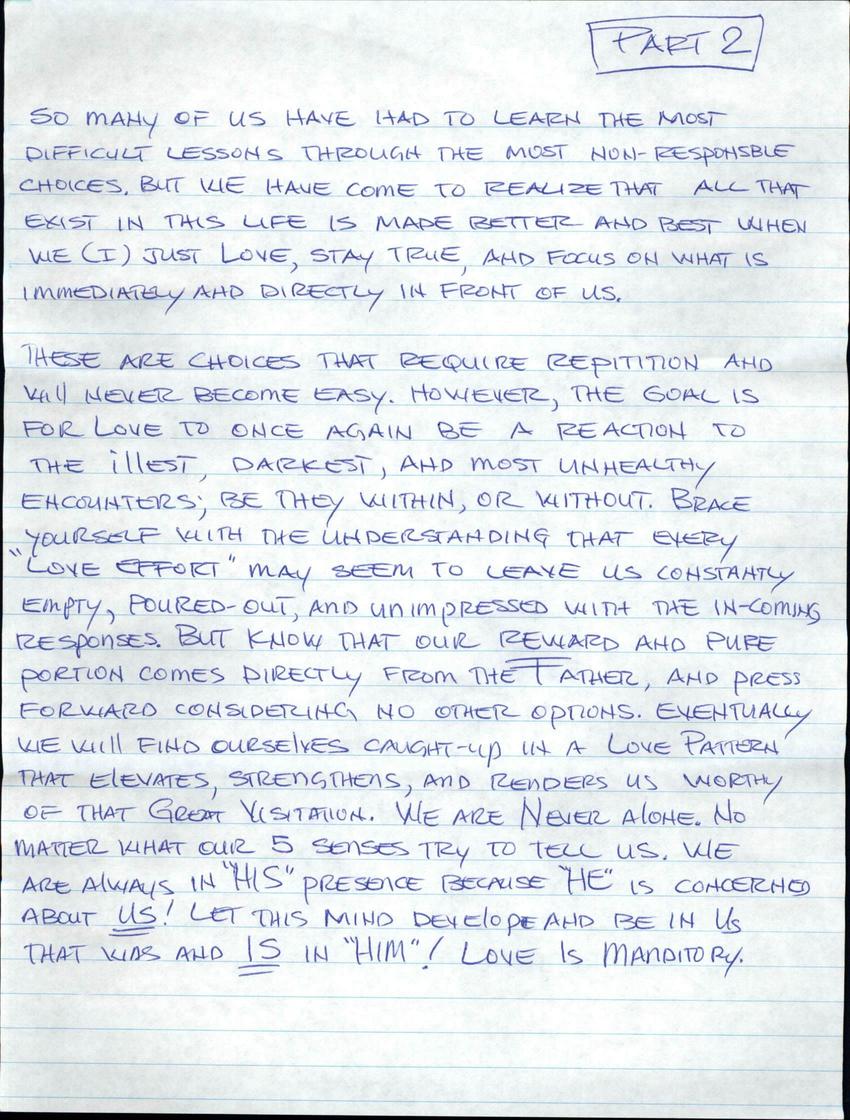 PART 2
SO MANY OF US HAVE HAD TO LEARN THE MOST
DIFFICULT LESSONS THROUGH THE MOST NON-RESPONSBLE
CHOICES. BUT WE HAVE COME TO REALIZE THAT ALL THAT
EXIST IN THIS LIFE IS MADE BETTER AND BEST WHEN
WE (I) JUST LOVE, STAY TRUE, AND FOCUS ON WHAT IS
IMMEDIATELY AND DIRECTLY IN FRONT OF US.
THESE ARE CHOICES THAT REQUIRE REPITITION AND
WILL NEVER BECOME EASY. HOWEVER, THE GOAL IS
FOR LOVE TO ONCE AGAIN BE A REACTION TO
THE illEST, DARKEST, AND MOST UNHEALTHY
ENCOUNTERS; BE THEY WITHIN, OR WITHOUT. BRACE
YOURSELF WITH THE UNDERSTANDING THAT EVERY
"LOVE EFFORT" MAY SEEM TO LEAVE US CONSTANTLY
EMPTY, POURED-OUT, AND UNIMPRESSED WITH THE IN-COMING
RESPONSES. BUT KNOW THAT OUR REWARD AND PURE
PORTION COMES DIRECTLY FROM THE FATHER, AND PRESS
FORWARD CONSIDERING NO OTHER OPTIONS. EVENTUALLY
WE WILL FIND OURSELVES CAUGHT-UP IN A LOVE PATTERN
THAT ELEVATES, STRENGTHENS, AND RENDERS US WORTHY
OF THAT GREAT VISITATION. WE ARE NEVER ALONE. NO
MATTER WHAT OUR 5 SENSES TRY TO TELL US. WE
ARE ALWAYS IN "HIS" PRESENCE BECAUSE "HE" IS CONCERNED
ABOUT US! LET THIS MIND DEVELOPE AND BE IN US
THAT WAS AND IS IN "HIM"! LOVE IS MANDITORY.